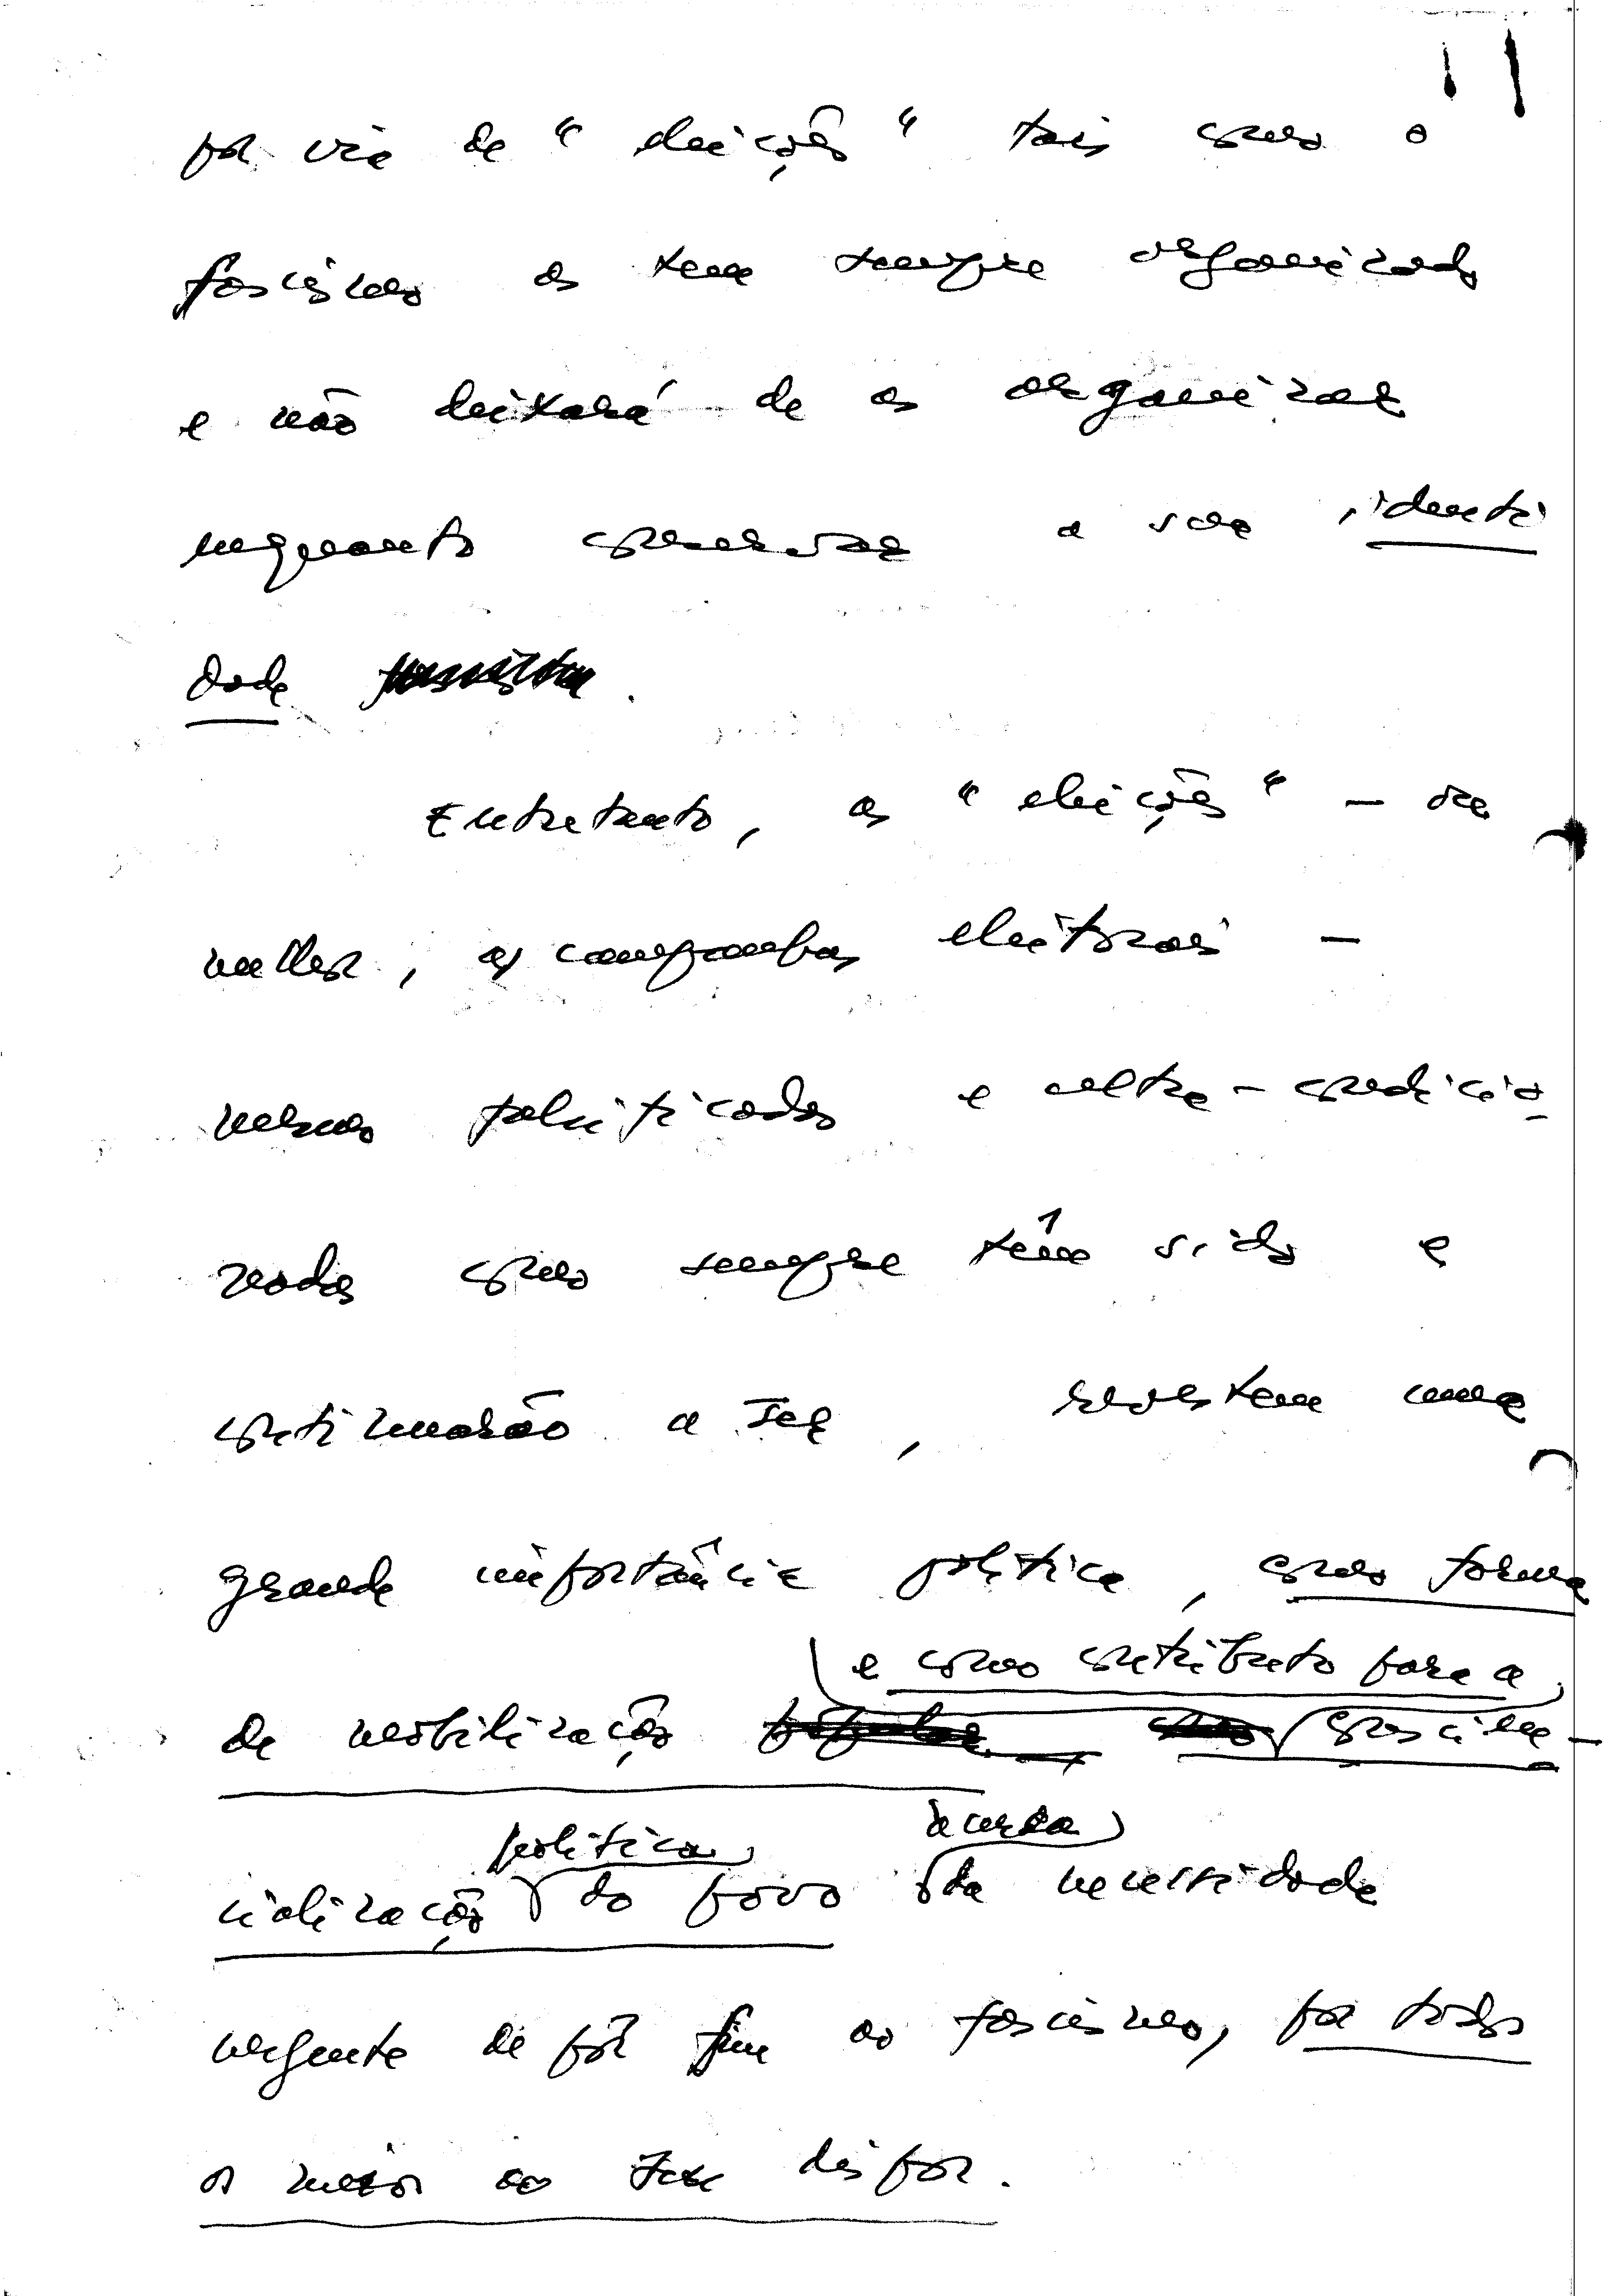 11
por via de "eleições" tais como o
fascismo as tem sempre organizado
e não deixará de as organizar
enquanto conservar a sua identi
dade.
Entretanto, as "eleições" - ou
melhor, as campanhas eleitorais -
mesmo falsificadas e ultra-condicio-
nadas como sempre têm sido e
continuarão a ser, revestem uma
grande importância política, como forma
e como contributo para a
de mobilização consciên-
política acerca
cialização do povo da necessidade
urgente de pôr fim ao fascismo, por todos
os meios ao seu dispor.